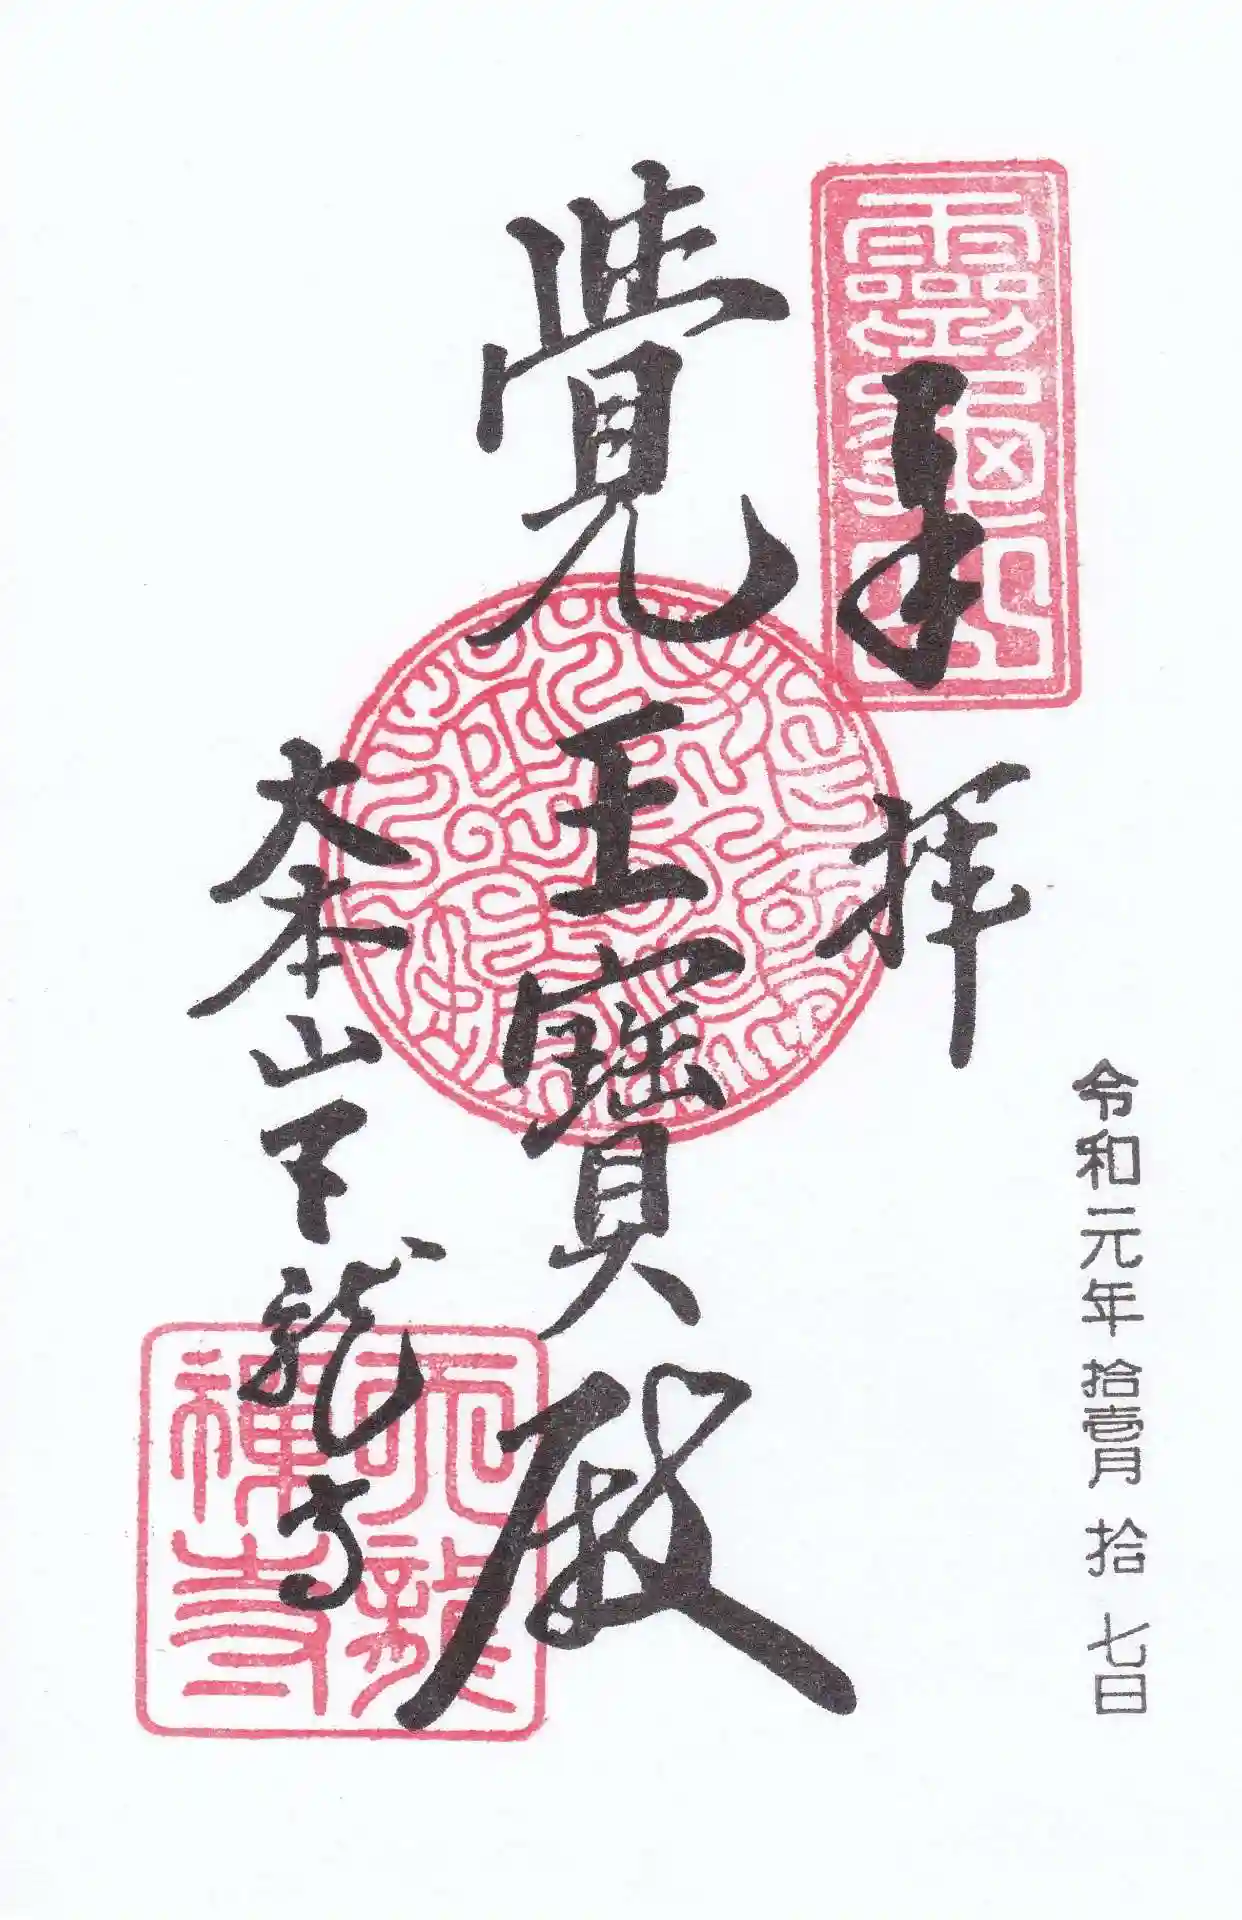 令和元年拾壹月拾七日
靈龜山
奉拝
覺王寶殿
大本山天龍寺
天龍
禪寺